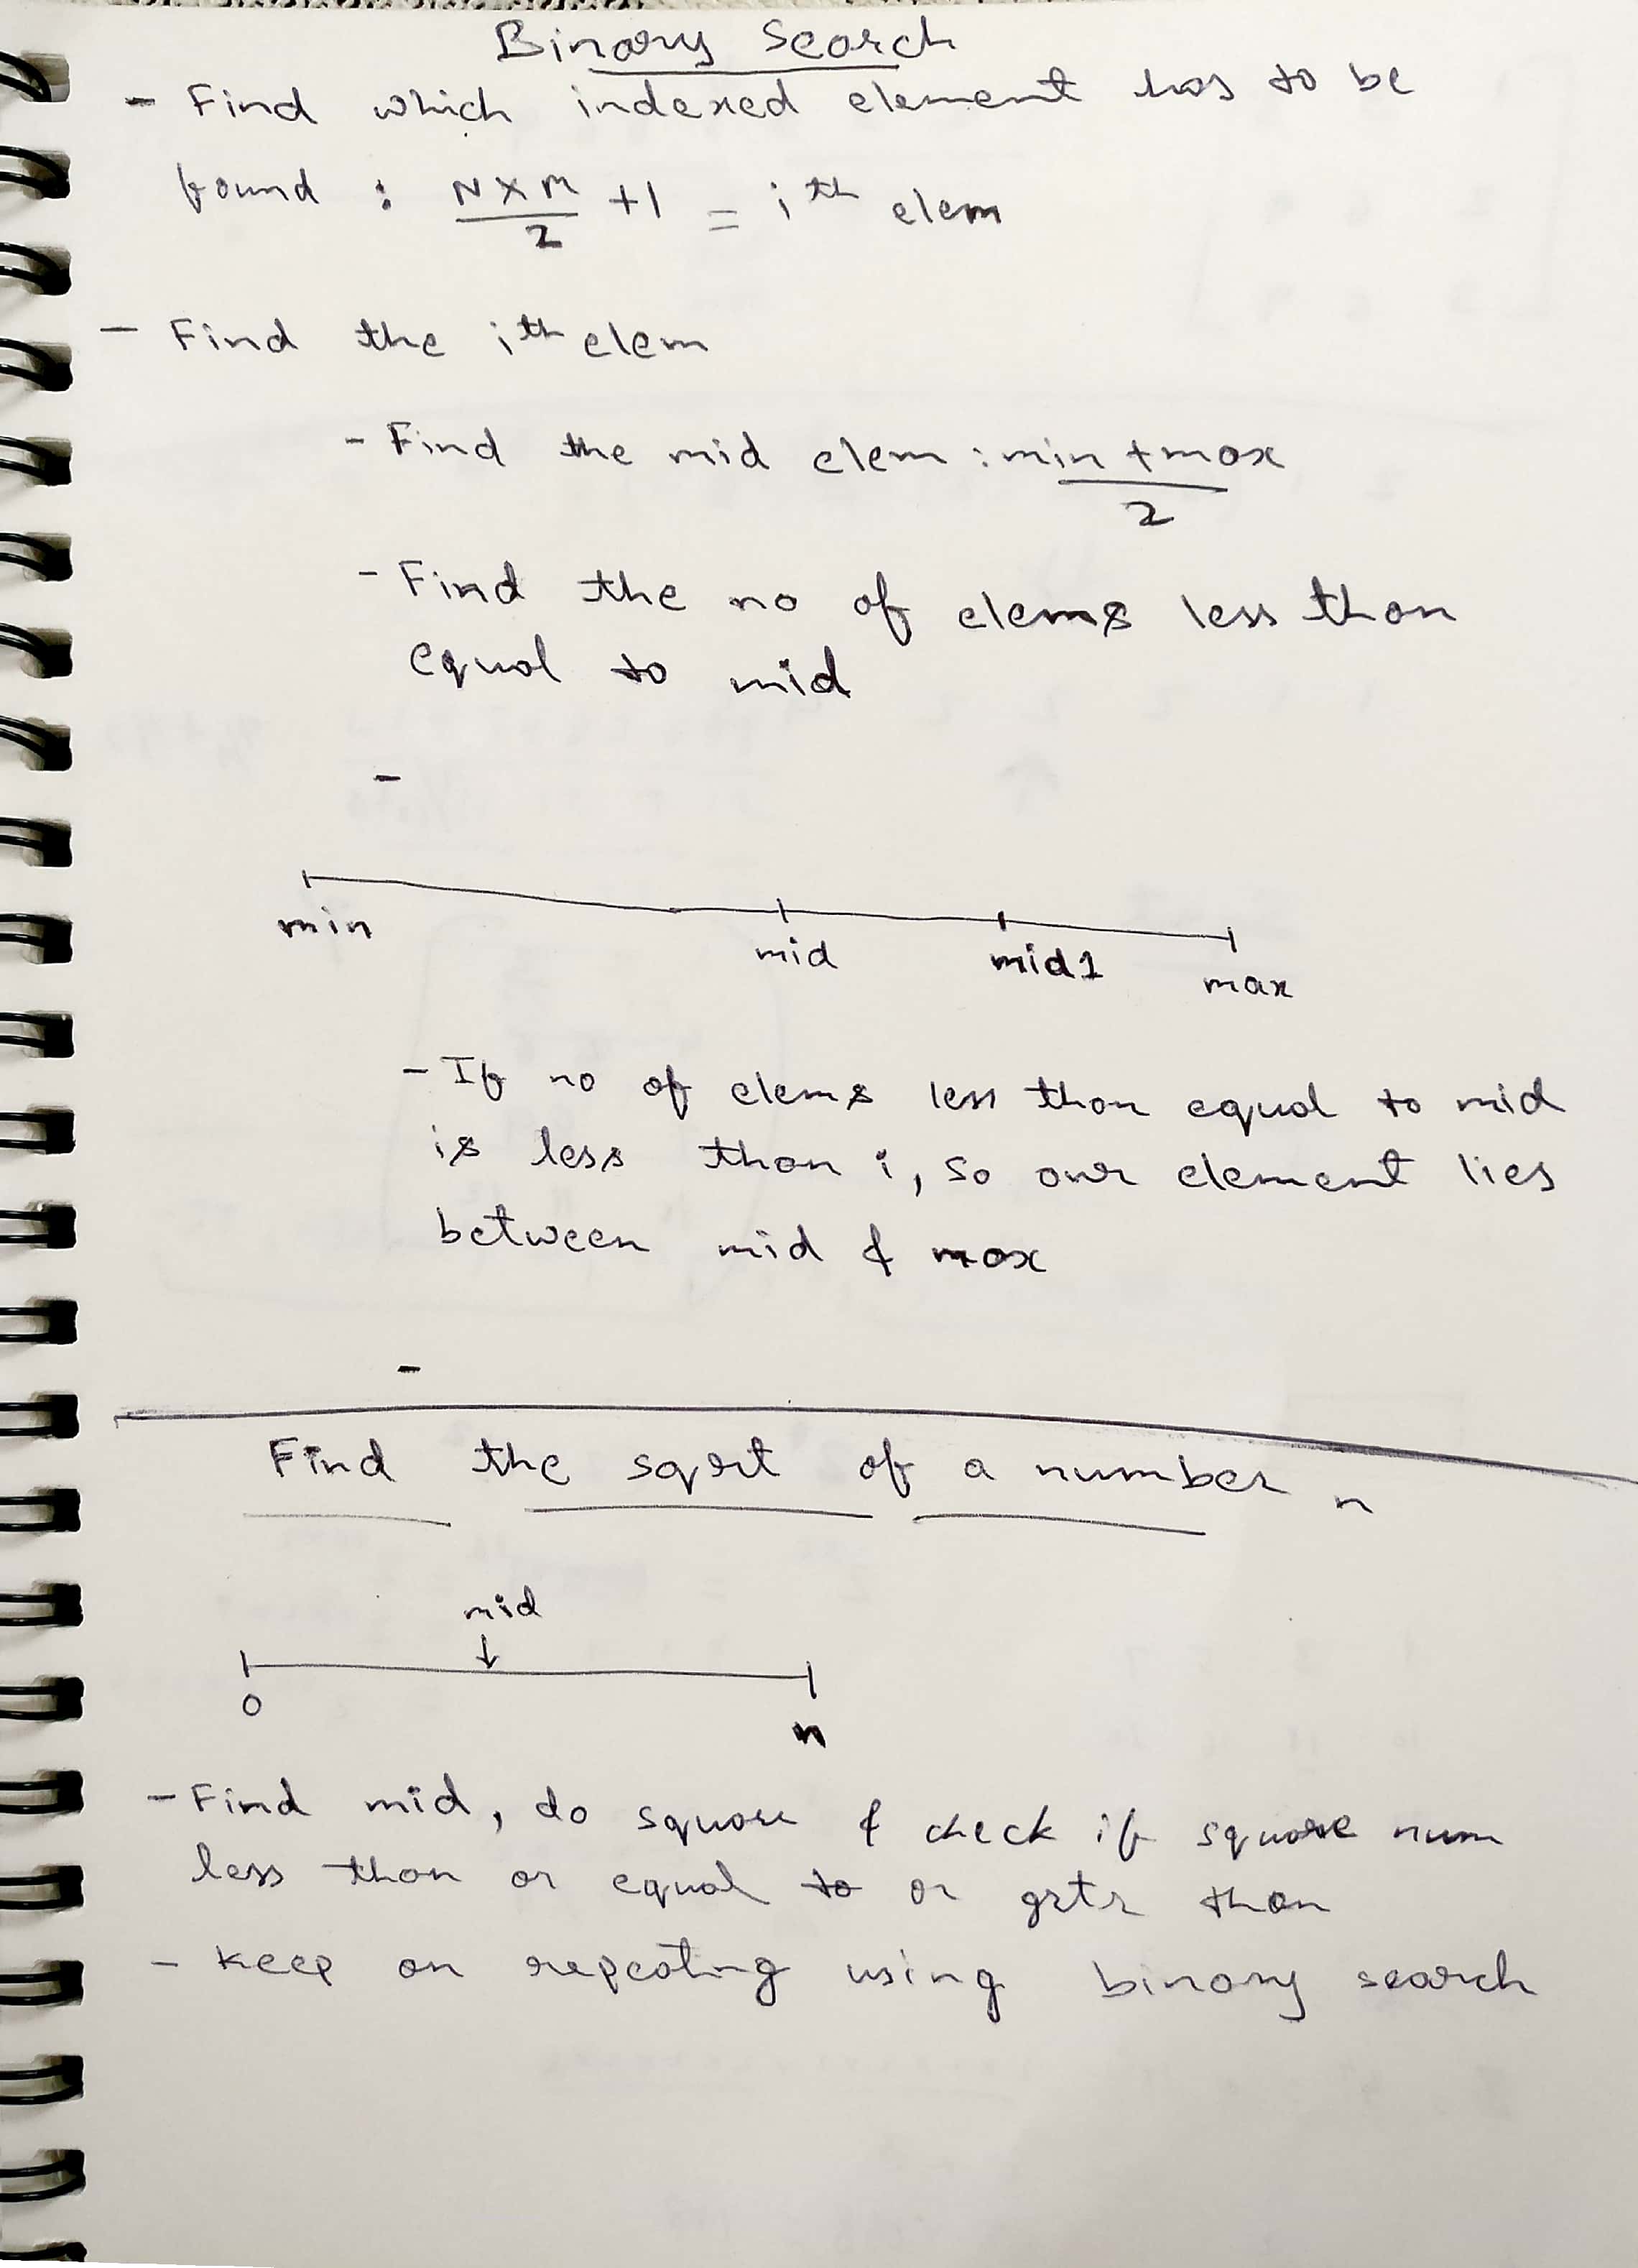 Binary Search
- Find which indexed element has to be
found : N X M / 2 + 1 = i th elem
- Find the i th elem
- Find the mid elem : min + max / 2
- Find the no of elems less than
equal to mid
-
min mid mid1 max
- If no of elems less than equal to mid
is less than i, so our element lies
between mid & max
-
Find the sqrt of a number n
mid
↓
0 n
- Find mid, do square & check if square num
less than or equal to or grtr than
- Keep on repeating using binary search